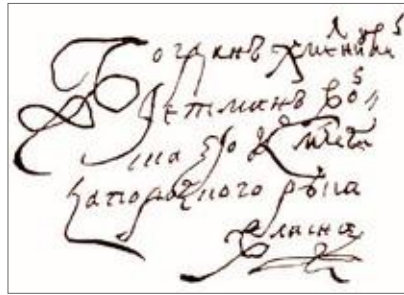 Богданъ Хмелницкий
Гетманъ Вой
ска Его К Млсти
Запорозкого рука
власна